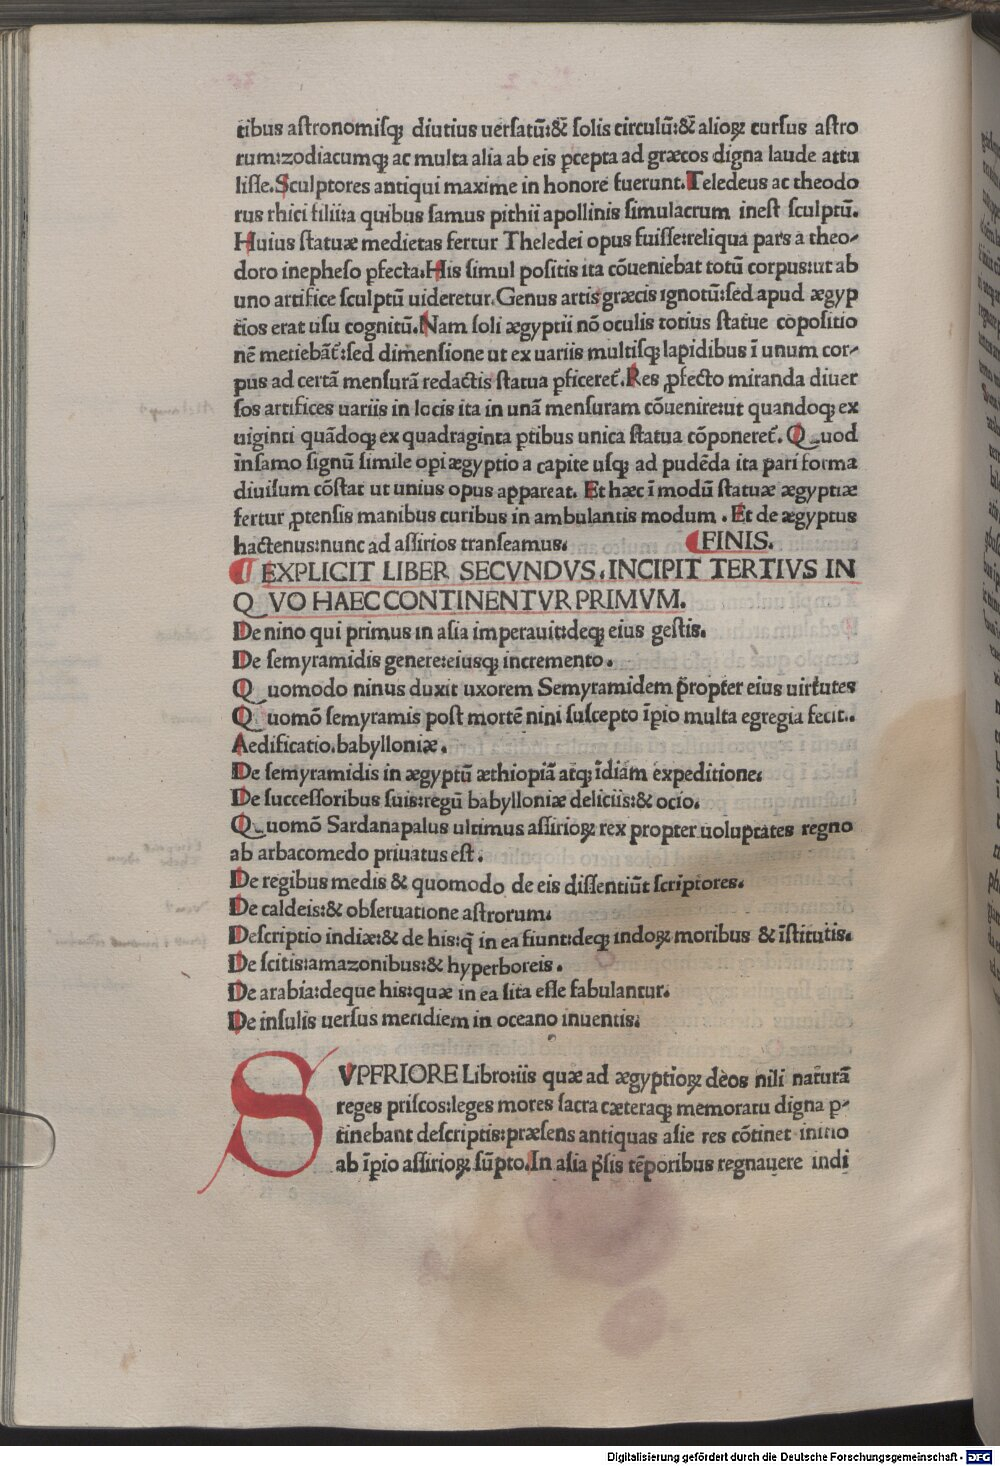 tibus aſtronomiſqꝫ diutius uerſatū:&̄ ſolis circulū:&̄ alioꝝ curſus aſtro
rum:zodiacumqꝫ ac multa alia ab eis ꝑcepta ad græcos digna laude attu
liſſe.Sculptores antiqui maxime in honore fuerunt.Teledeus ac theodo
rus rhici filii:a quibus ſamus pithii apollinis ſimulacrum ineſt ſculptū.
Huius ſtatuæ medietas fertur Theledei opus fuiſſe:reliqua pars a theo-
doro inepheſo ꝑfecta.His ſimul poſitis ita cōueniebat totū corpus:ut ab
uno artifice ſculptū uideretur.Genus artis græcis ignotū:ſed apud ægyp
tios erat uſu cognitū.Nam ſoli ægyptii nō oculis totius ſtatue cōpoſitio
nē metiebāt̃:ſed dimenſione ut ex uariis multiſqꝫ lapidibus ī unum cor-
pus ad certā menſurā redactis ſtatua ꝑficeret̃.Res ꝓfecto miranda diuer
ſos artifices uariis in locis ita in unā menſuram cōuenire:ut quandoqꝫ ex
uiginti quādoqꝫ ex quadraginta ꝑtibus unica ſtatua cōponeret̃. Quod
īnſamo ſignū ſimile opi ægyptio a capite uſqꝫ ad pudēda ita pari forma
diuiſum cōſtat ut unius opus appareat. Et hæc ī modū ſtatuæ ægyptiæ
fertur ꝓtenſis manibus curibus in ambulantis modum . Et de ægyptus
hactenus:nunc ad aſſirios tranſeamus. ¶FINIS.
¶ EXPLICIT LIBER SECVNDVS.INCIPIT TERTIVS IN
QVO HAEC CONTINENTVR PRIMVM.
De nino qui primus in aſia imperauit:deqꝫ eius geſtis.
De ſemyramidis genere:eiusqꝫ incremento.
Quomodo ninus duxit uxorem Semyramidem p̄ropter eius uirtutes
Quomō ſemyramis poſt mortē nini ſuſcepto īꝑio multa egregia fecit..
Aedificatio.babylloniæ.
De ſemyramidis in ægyptū æthiopiā atqꝫ īdiām expeditione.
De ſucceſſoribus ſuis:regū babylloniæ deliciis:& ocio.
Quomō Sardanapalus ultimus aſſirioꝝ rex propter uoluptates regno
ab arbacomedo priuatus eſt.
De regibus medis & quomodo de eis diſſentiūt ſcriptores.
De caldeis:& obſeruatione aſtrorum.
Deſcriptio indiæ:& de his:q̄ in ea fiunt:deqꝫ indoꝝ moribus & īſtitutis.
De ſcitis:amazonibus:& hyperboreis.
De arabia:deque his:quæ in ea ſita eſſe fabulantur.
De inſulis uerſus meridiem in oceano inuentis.
SVPERIORE Libro:iis quæ ad ægyptioꝝ deos nili naturā
reges priſcos:leges mores ſacra cæteraqꝫ memoratu digna ꝑ-
tinebant deſcriptis:præſens antiquas aſie res cōtinet initio
ab īꝑio aſſirioꝝ ſūpto.In aſia p̄ſis tēporibus regnauere indi
Digitalisierung gefördert durch die Deutsche Forschungsgemeinschaft - DFG